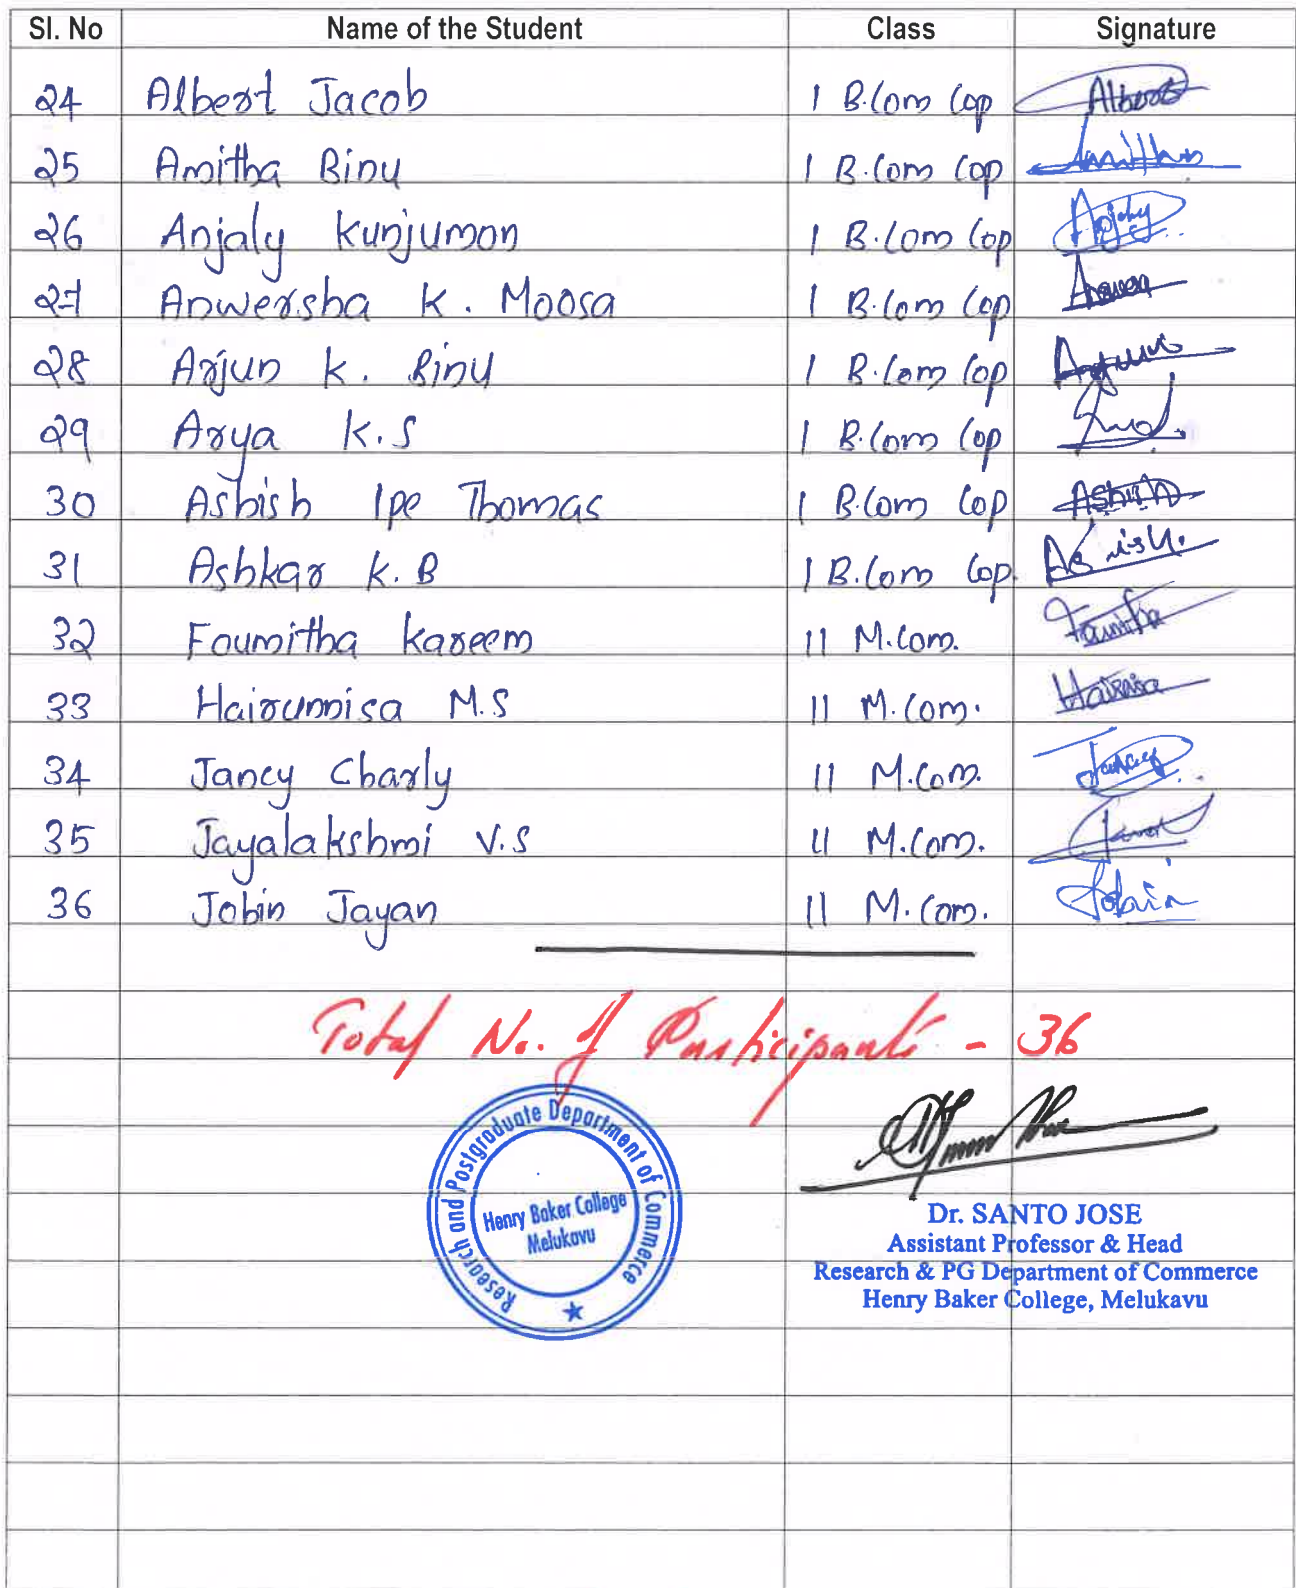 Sl. No Name of the Student Class Signature
24 Albert Jacob I B.Com Cop Albert
25 Amitha Binu I B.Com Cop Amitha
26 Anjaly Kunjumon I B.Com Cop Anjaly
27 Anwersha K. Moosa I B.Com Cop
28 Arjun K. Binu I B.Com Cop Arjun
29 Arya K.S I B.Com Cop
30 Ashish Ipe Thomas I B.Com Cop Ashish
31 Ashkar K.B I B.Com Cop.
32 Foumitha Kareem II M.Com.
33 Hairunnisa M.S II M.Com.
34 Jancy Charly II M.Com. Jancy
35 Jayalakshmi V.S II M.Com.
36 Jobin Jayan II M.Com. Jobin
Total No. of Participants - 36
Research and Postgraduate Department of Commerce
Henry Baker College
Melukavu
Dr. SANTO JOSE
Assistant Professor & Head
Research & PG Department of Commerce
Henry Baker College, Melukavu